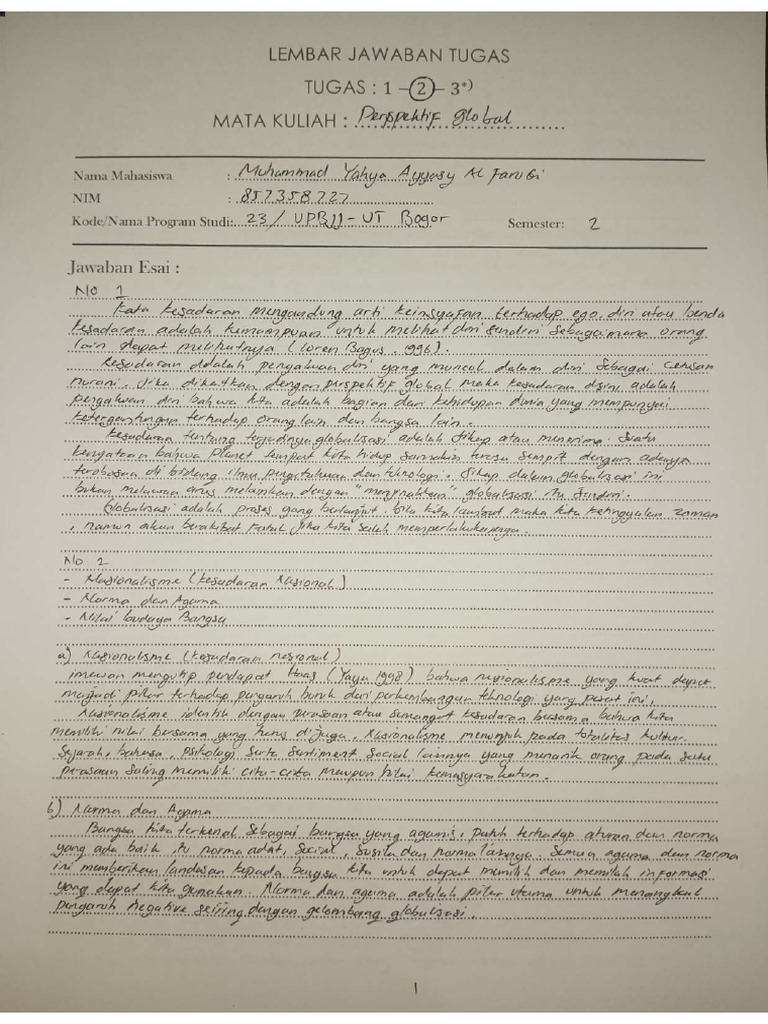 LEMBAR JAWABAN TUGAS
TUGAS : 1 – 2 – 3*)
MATA KULIAH : Perspektif global
Nama Mahasiswa : Muhammad Yahya Ayyasy Al Farubi
NIM : 857358727
Kode/Nama Program Studi: 23 / UPBJJ - UT Bogor Semester: 2
Jawaban Esai :
No 1
Kata kesadaran mengandung arti keinsyafan terhadap ego, diri atau benda
kesadaran adalah kemampuan untuk melihat diri sendiri sebagaimana orang
lain dapat melihatnya (Loren Bagus, 996).
Kesadaran adalah pengakuan diri yang muncul dalam diri sebagai cerusan
nurani. Jika dikaitkan dengan perspektif global maka kesadaran disini adalah
pengakuan diri bahwa kita adalah bagian dari kehidupan dunia yang mempunyai
ketergantungan terhadap orang lain dan bangsa lain.
Kesadaran tentang terjadinya globalisasi adalah sikap atau menerima suatu
kenyataan bahwa planet tempat kita hidup semakin terasa sempit dengan adanya
terobosan di bidang ilmu pengetahuan dan teknologi. Sikap dalam globalisasi ini
bukan melawan arus melainkan dengan "menjinakkan" globalisasi itu sendiri.
Globalisasi adalah proses yang berlanjut. bila kita lambat maka kita ketinggalan zaman
, namun akan berakibat fatal jika kita salah memperlakukannya.
No 2
- Nasionalisme (kesadaran Nasional)
- Norma dan Agama
- Nilai budaya Bangsa
a) Nasionalisme (kesadaran nasional)
imawan mengutip pendapat Haas (Yaya 1998) bahwa nasionalisme yang kuat dapat
menjadi pilar terhadap pengaruh buruk dari perkembangan teknologi yang pesat ini.
Nasionalisme identik dengan perasaan atau semangat kesadaran bersama bahwa kita
memiliki nilai bersama yang harus dijaga. Nasionalisme menunjuk pada totalitas kultur.
Sejarah, bahasa, psikologi serta sentiment social lainnya yang menarik orang pada satu
perasaan saling memiliki cita-cita maupun nilai kemasyarakatan.
b) Norma dan Agama
Bangsa kita terkenal sebagai bangsa yang agamis, patuh terhadap aturan dan norma
yang ada baik itu norma adat, social, susila dan norma lainnya. Semua agama dan norma
ini memberikan landasan kepada bangsa kita untuk dapat memilih dan memilah informasi
yang dapat kita gunakan. Norma dan agama adalah pilar utama untuk menangkal
pengaruh negative seiring dengan gelombang globalisasi.
1